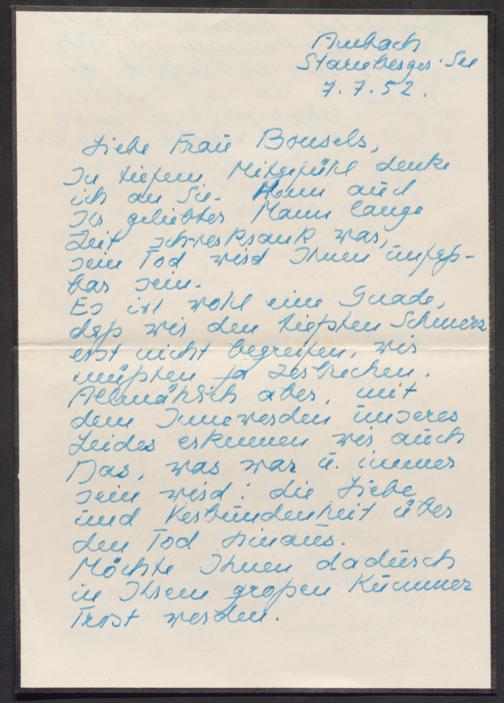 Ambach
Starnberger-See
7.7.52.
Liebe Frau Bonsels,
In tiefem Mitgefühl denke
ich an Sie. Wenn auch
Ihr geliebter Mann lange
Zeit schwerkrank war,
sein Tod wird Ihnen unfaß-
bar sein.
Es ist wohl eine Gnade,
daß wir den tiefsten Schmerz
erst nicht begreifen, wir
müßten ja zerbrechen.
Allmählich aber, mit
dem Innewerden unseres
Leides erkennen wir auch
Das, was war u. immer
sein wird: die Liebe
und Verbundenheit über
den Tod hinaus.
Möchte Ihnen dadurch
in Ihrem großen Kummer
Trost werden.